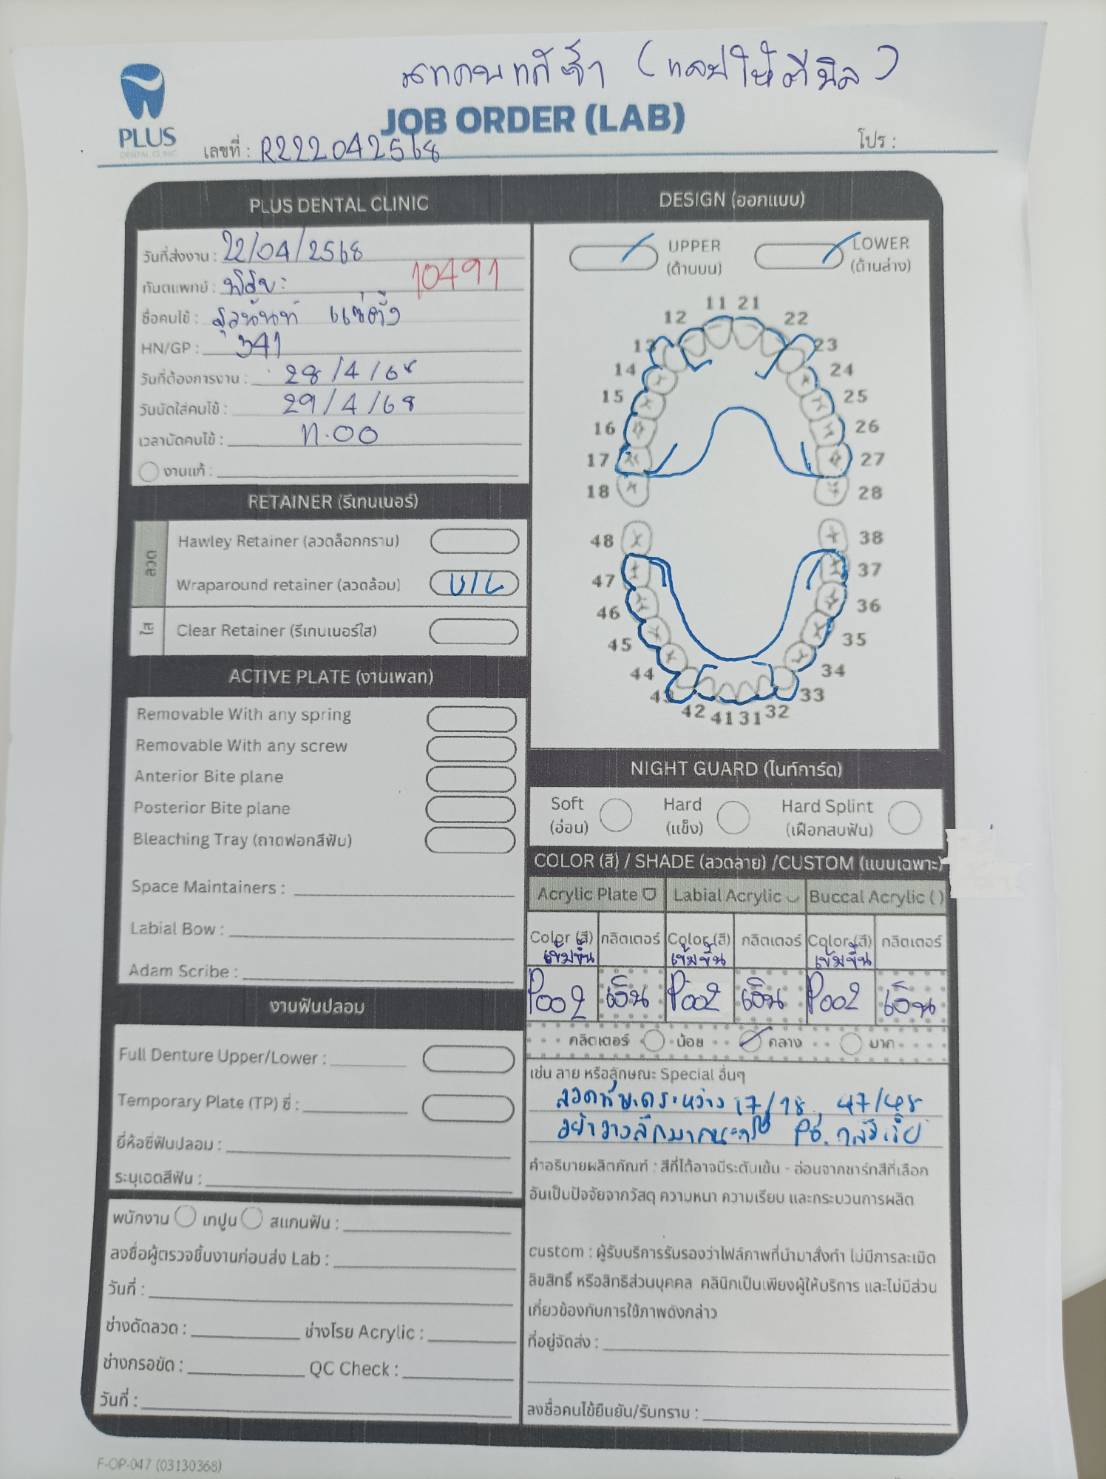 PLUS
DENTAL CLINIC
JOB ORDER (LAB)
เลขที่ : R222042568
โปร :
PLUS DENTAL CLINIC
วันที่ส่งงาน : 22/04/2568
ทันตแพทย์ :
10491
ชื่อคนไข้ :
HN/GP : 341
วันที่ต้องการงาน : 28/4/68
วันนัดใส่คนไข้ : 29/4/68
เวลานัดคนไข้ : 17.00
งานแก้ :
RETAINER (รีเทนเนอร์)
ลวด
Hawley Retainer (ลวดล็อกกราม)
Wraparound retainer (ลวดล้อม) U/L
ใส
Clear Retainer (รีเทนเนอร์ใส)
ACTIVE PLATE (งานเพลท)
Removable With any spring
Removable With any screw
Anterior Bite plane
Posterior Bite plane
Bleaching Tray (ถาดฟอกสีฟัน)
Space Maintainers :
Labial Bow :
Adam Scribe :
งานฟันปลอม
Full Denture Upper/Lower :
Temporary Plate (TP) ซี่ :
ยี่ห้อซี่ฟันปลอม :
ระบุเฉดสีฟัน :
พนักงาน เทปูน สแกนฟัน :
ลงชื่อผู้ตรวจชิ้นงานก่อนส่ง Lab :
วันที่ :
ช่างดัดลวด : ช่างโรย Acrylic :
ช่างกรอขัด : QC Check :
วันที่ :
DESIGN (ออกแบบ)
UPPER
(ด้านบน)
LOWER
(ด้านล่าง)
11 21
12 22
13 23
14 24
15 25
16 26
17 27
18 28
48 38
47 37
46 36
45 35
44 34
43 33
42 41 31 32
NIGHT GUARD (ไนท์การ์ด)
Soft
(อ่อน)
Hard
(แข็ง)
Hard Splint
(เฝือกสบฟัน)
COLOR (สี) / SHADE (ลวดลาย) /CUSTOM (แบบเฉพาะ)
Acrylic Plate Labial Acrylic Buccal Acrylic ( )
Color (สี) กลิตเตอร์ Color (สี) กลิตเตอร์ Color (สี) กลิตเตอร์
เข้มขึ้น เข้มขึ้น เข้มขึ้น
P002 เงิน P002 เงิน P002 เงิน
กลิตเตอร์ น้อย กลาง มาก
เช่น ลาย หรือลักษณะ Special อื่นๆ
17/18, 47/48
คำอธิบายผลิตภัณฑ์ : สีที่ได้อาจมีระดับเข้ม - อ่อนจากชาร์ทสีที่เลือก
อันเป็นปัจจัยจากวัสดุ ความหนา ความเรียบ และกระบวนการผลิต
custom : ผู้รับบริการรับรองว่าไฟล์ภาพที่นำมาสั่งทำ ไม่มีการละเมิด
ลิขสิทธิ์ หรือสิทธิส่วนบุคคล คลินิกเป็นเพียงผู้ให้บริการ และไม่มีส่วน
เกี่ยวข้องกับการใช้ภาพดังกล่าว
ที่อยู่จัดส่ง :
ลงชื่อคนไข้ยืนยัน/รับทราบ :
F-OP-047 (03130368)